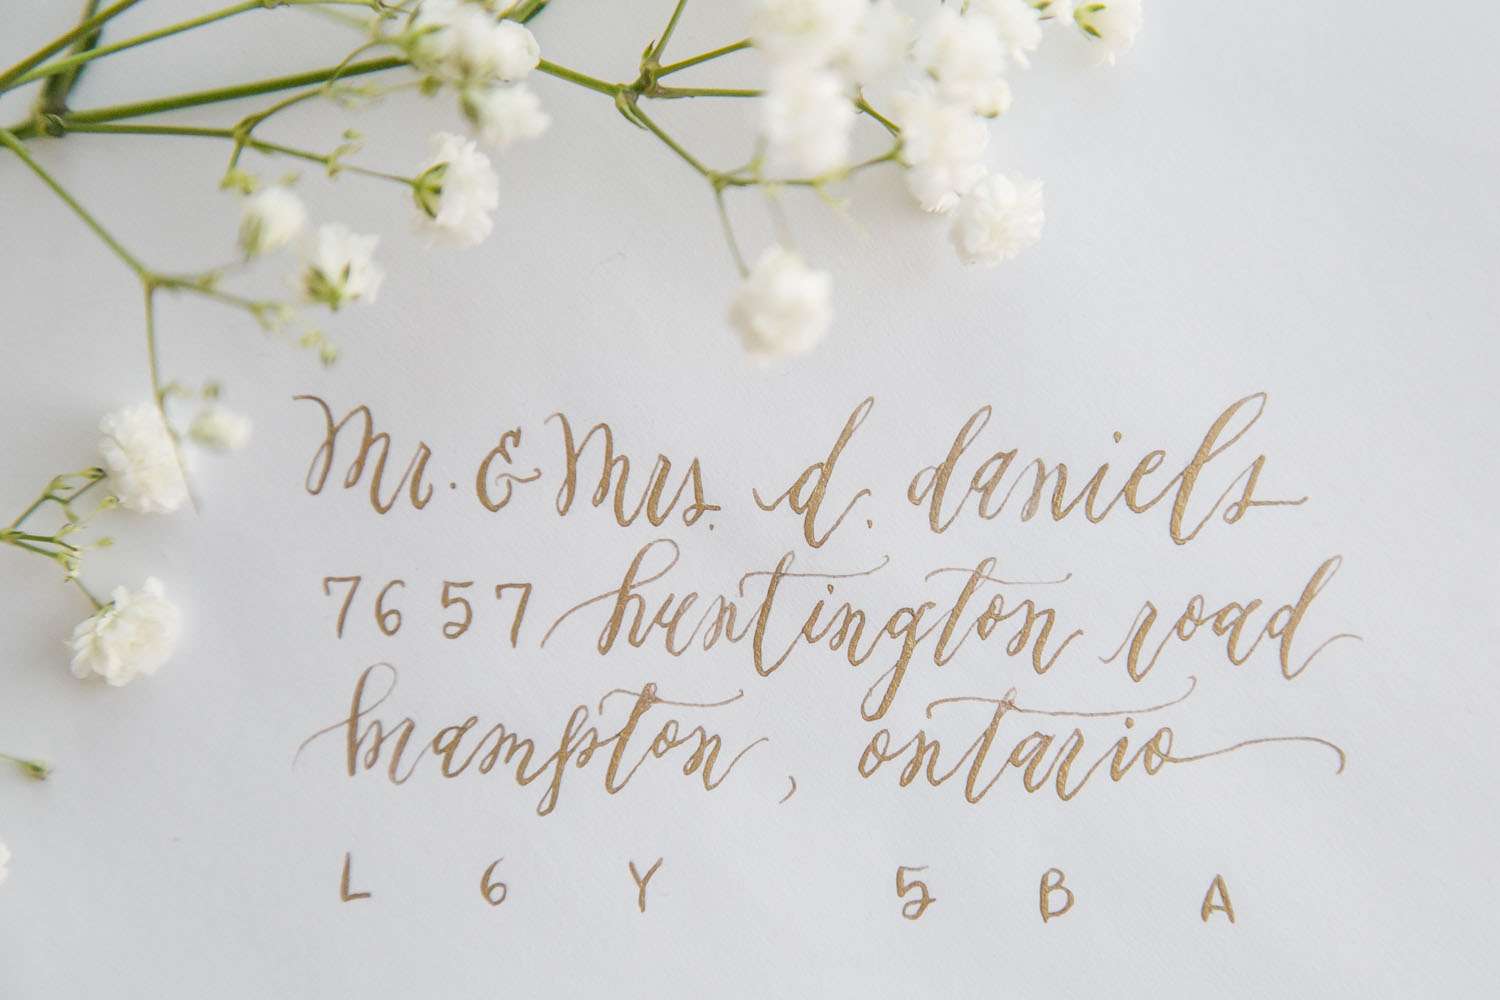 Mr. & Mrs. d. daniels
7657 huntington road
brampton, ontario
L6Y 5BA